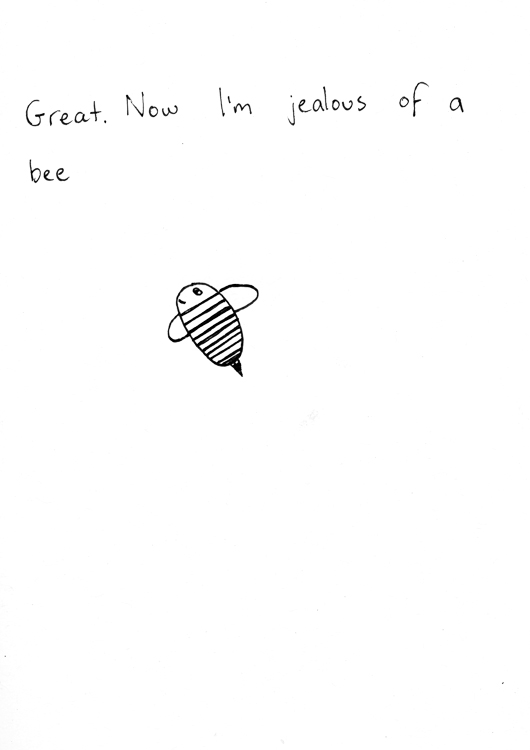 Great. Now I'm jealous of a
bee